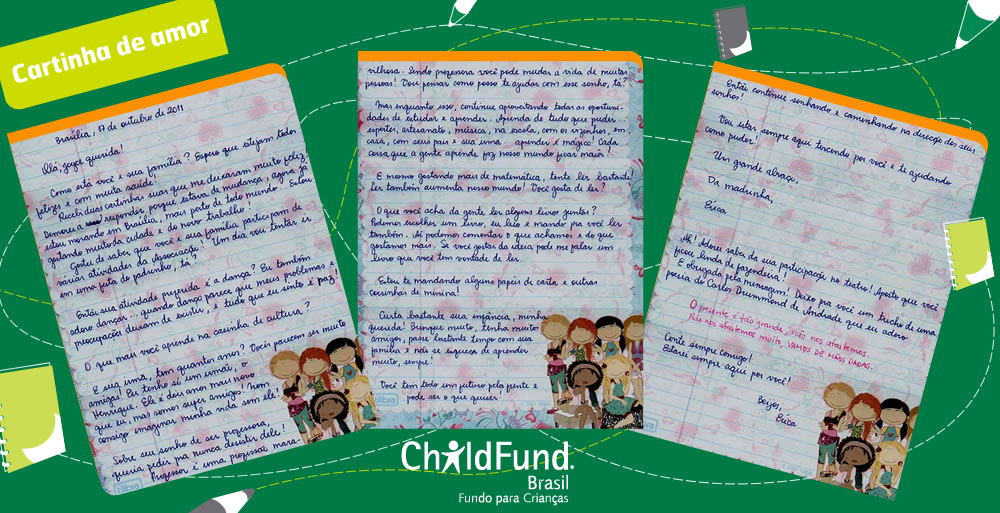 Cartinha de amor
Brasília, 17 de outubro de 2011
Olá, Joyce querida!
Como está você e sua família? Espero que estejam todos
felizes e com muita saúde!
Recebi duas cartinhas suas que me deixaram muito feliz!
Demorou a responder porque estava de mudança, agora já
estou morando em Brasília, mais perto de todo mundo! Estou
gostando muito da cidade e do novo trabalho!
Gostei de saber que você e sua família participam de
várias atividades da Associação! Um dia vou tentar ir
em uma festa de padrinho, tá?
Então sua atividade preferida é a dança? Eu também
adoro dançar... quando danço parece que meus problemas e
preocupações deixam de existir, e tudo que eu sinto é paz!
O que mais você aprende na casinha de cultura?
E sua irmã, tem quantos anos? Vocês parecem ser muito
amigas! Eu tenho só um irmão, o
Henrique. Ele é dois anos mais novo
que eu, mas somos super amigos! Nem
consigo imaginar minha vida sem ele!
Sobre seu sonho de ser professora,
queria pedir pra nunca desistir dele!
Professor é uma profissão mara-
tilibra
vilhosa. Sendo professora você pode mudar a vida de muitas
pessoas! Vou pensar como posso te ajudar com esse sonho, tá?
Mas enquanto isso, continue aproveitando todas as oportuni-
dades de estudar e aprender. Aprenda de tudo que puder
esportes, artesanato, música, na escola, com os vizinhos, em
casa, com seus pais e sua irmã... aprender é mágico! Cada
coisa que a gente aprende faz nosso mundo ficar maior!
E mesmo gostando mais de matemática, tente ler bastante!
Ler também aumenta nosso mundo! Você gosta de ler?
O que você acha da gente ler alguns livros juntas?
Podemos escolher um livro, eu leio e mando pra você ler
também. Aí podemos comentar o que achamos e do que
gostamos mais. Se você gostar da ideia pode me falar um
livro que você tem vontade de ler.
Estou te mandando alguns papéis de carta e outras
coisinhas de menina!
Curta bastante sua infância, minha
querida! Brinque muito, tenha muitos
amigos, passe bastante tempo com sua
família e não se esqueça de aprender
muito, sempre!
Você tem todo um futuro pela frente e
pode ser o que quiser!
tilibra
Então continue sonhando e caminhando na direção dos seus
sonhos!
Vou estar sempre aqui torcendo por você e te ajudando
como puder!
Um grande abraço,
Da madrinha,
Érica
Ah! Adorei saber da sua participação no teatro! Aposto que você
ficou linda de fazendeira!
E obrigada pela mensagem! Deixo pra você um trecho de uma
poesia de Carlos Drummond de Andrade que eu adoro:
O presente é tão grande, não nos afastemos.
Não nos afastemos muito, VAMOS DE MÃOS DADAS.
Conte sempre comigo!
Estarei sempre aqui por você!
Beijos,
Érica
ChildFund.
Brasil
Fundo para Crianças